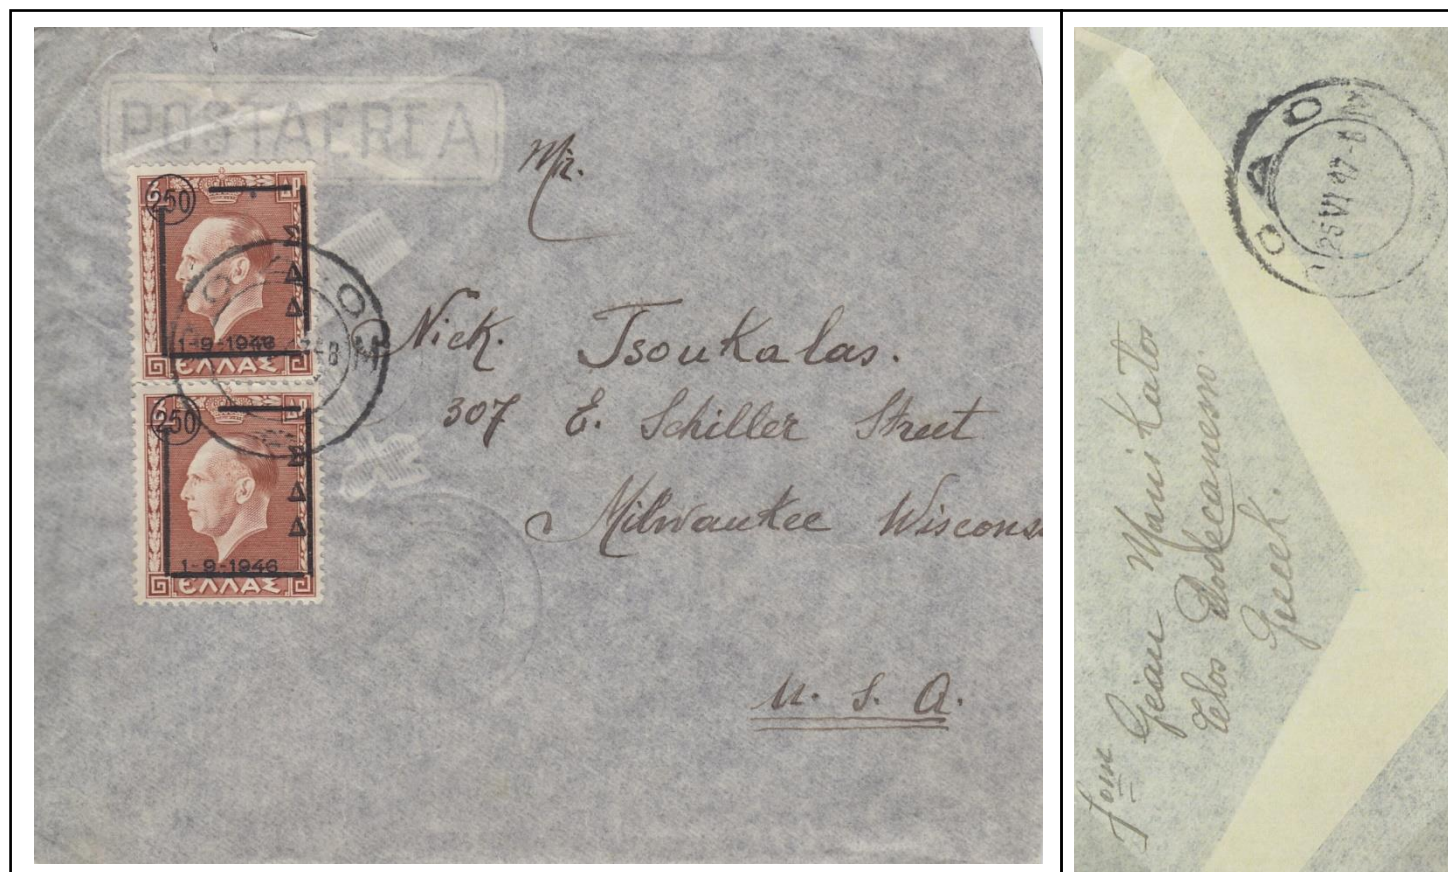 POSTAEREA
6 ΔΡ
250
Σ
Δ
Δ
1-9-1946
ΕΛΛΑΣ
250
ΔΡ
Σ
Δ
Δ
1-9-1946
ΕΛΛΑΣ
Mr.
Nick. Tsoukalas.
307 E. Schiller Street
Milwaukee Wisconsi
U. S. A.
25 VI 47-8 M
Manis Katos
Dodecanesso
Greek.